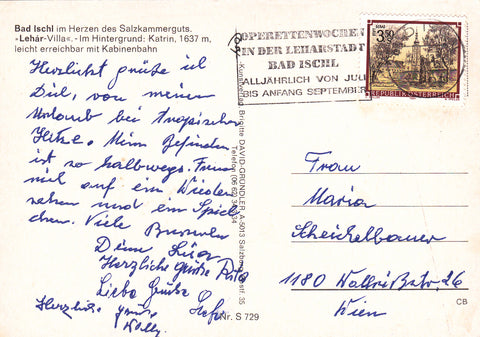 Bad Ischl im Herzen des Salzkammerguts.
»Lehár-Villa«. - Im Hintergrund: Katrin, 1637 m,
leicht erreichbar mit Kabinenbahn
Herzlichst grüße ich
Dich, von meinem
Urlaub bei tropischer
Hitze. Mein Befinden
ist so halbwegs. Freue
mich auf ein Wieder
sehen und ein Spiel
chen. Viele Busserln
Deine
Herzliche Grüße
Liebe Grüße
Herzliche Grüße
Kunstverlag Brigitte DAVID-GRÜNDLER, A-5013 Salzburg
Telefon (06 62)
Nr. S 729
OPERETTENWOCHEN
IN DER LEHARSTADT
BAD ISCHL
ALLJÄHRLICH VON JULI
BIS ANFANG SEPTEMBER
3.50
REPUBLIK ÖSTERREICH
Frau
Maria
Scheichelbauer
1180 26
Wien
CB